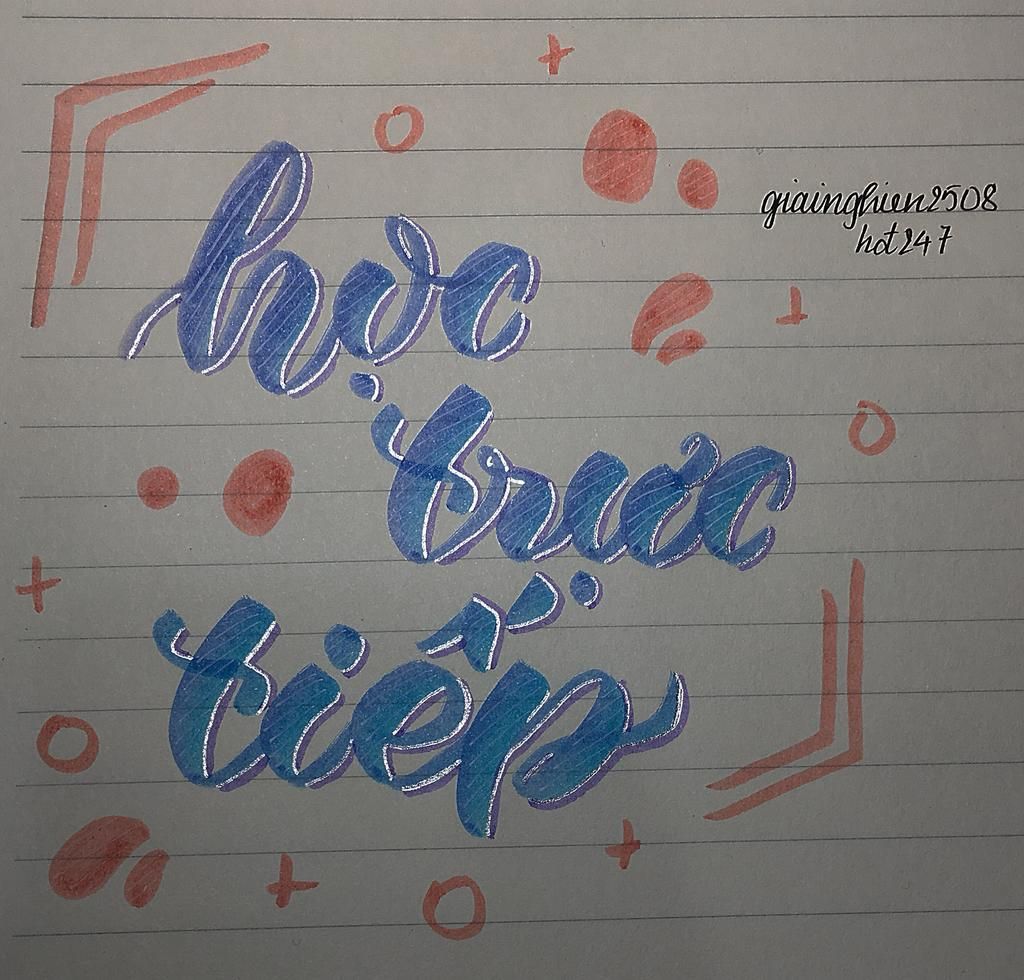 học
trực
tiếp
giainghien2508
hot247